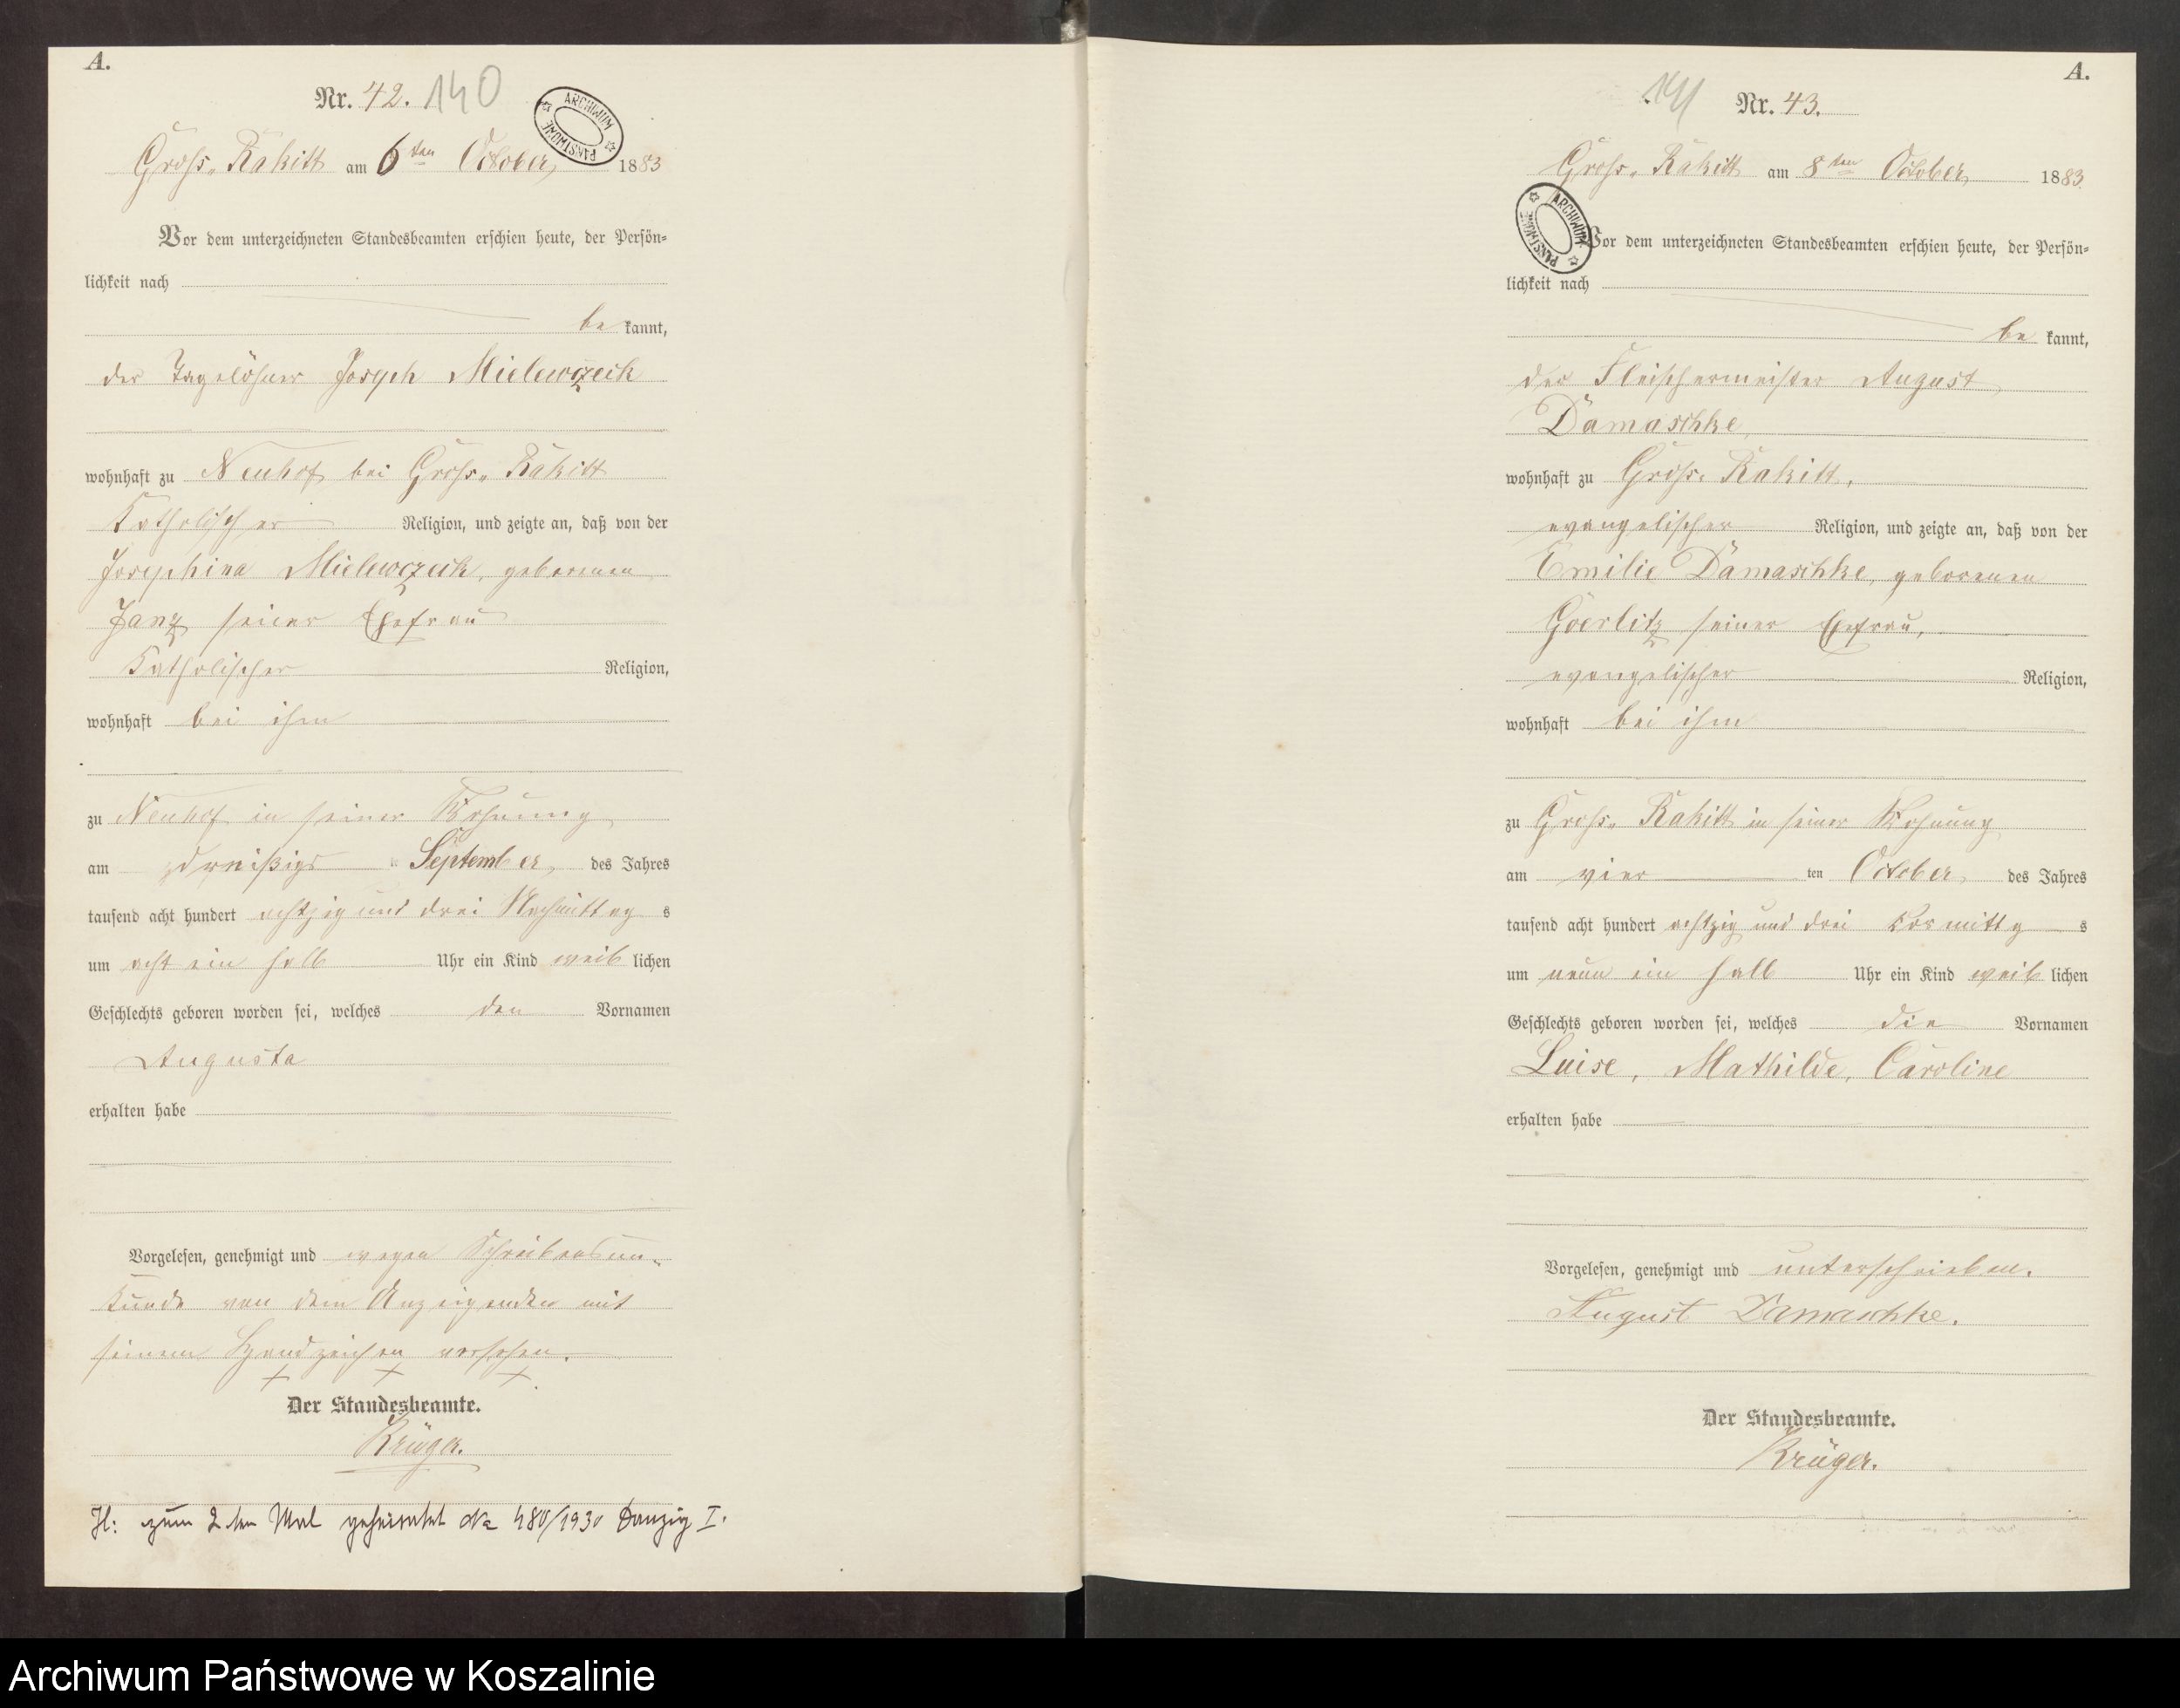 A.
Nr. 42. 140
ARCHIWUM PAŃSTWOWE
Gross-Rakitt am 6ten October 1883
Vor dem unterzeichneten Standesbeamten erschien heute, der Persön-
lichkeit nach
be kannt,
der Tagelöhner Joseph Mielewczeck
wohnhaft zu Neuhof bei Gross-Rakitt
Katholischer Religion, und zeigte an, daß von der
Josephina Mielewczeck, geborenen
Janz seiner Ehefrau
Katholischer Religion,
wohnhaft bei ihm
zu Neuhof in seiner Wohnung
am dreißigs September, des Jahres
tausend acht hundert achtzig und drei Nachmittag s
um acht ein halb Uhr ein Kind weib lichen
Geschlechts geboren worden sei, welches den Vornamen
Augusta
erhalten habe
Vorgelesen, genehmigt und wegen Schreibensun-
kunde von dem Anzeigenden mit
seinem Handzeichen versehen.
+ + +
Der Standesbeamte.
Krüger.
H: zum 2ten Mal geheiratet No 480/1930 Danzig I.
A.
141 Nr. 43.
Gross-Rakitt am 8ten October, 1883
ARCHIWUM PAŃSTWOWE
Vor dem unterzeichneten Standesbeamten erschien heute, der Persön-
lichkeit nach
be kannt,
der Fleischermeister August
Damaschke,
wohnhaft zu Gross-Rakitt,
evangelischer Religion, und zeigte an, daß von der
Emilie Damaschke, geborenen
Goerlitz seiner Ehefrau,
evangelischer Religion,
wohnhaft bei ihm
zu Gross-Rakitt in seiner Wohnung
am vier ten October des Jahres
tausend acht hundert achtzig und drei Vormittg s
um neun ein halb Uhr ein Kind weib lichen
Geschlechts geboren worden sei, welches die Vornamen
Luise, Mathilde, Caroline
erhalten habe
Vorgelesen, genehmigt und unterschrieben.
August Damaschke.
Der Standesbeamte.
Krüger.
Archiwum Państwowe w Koszalinie